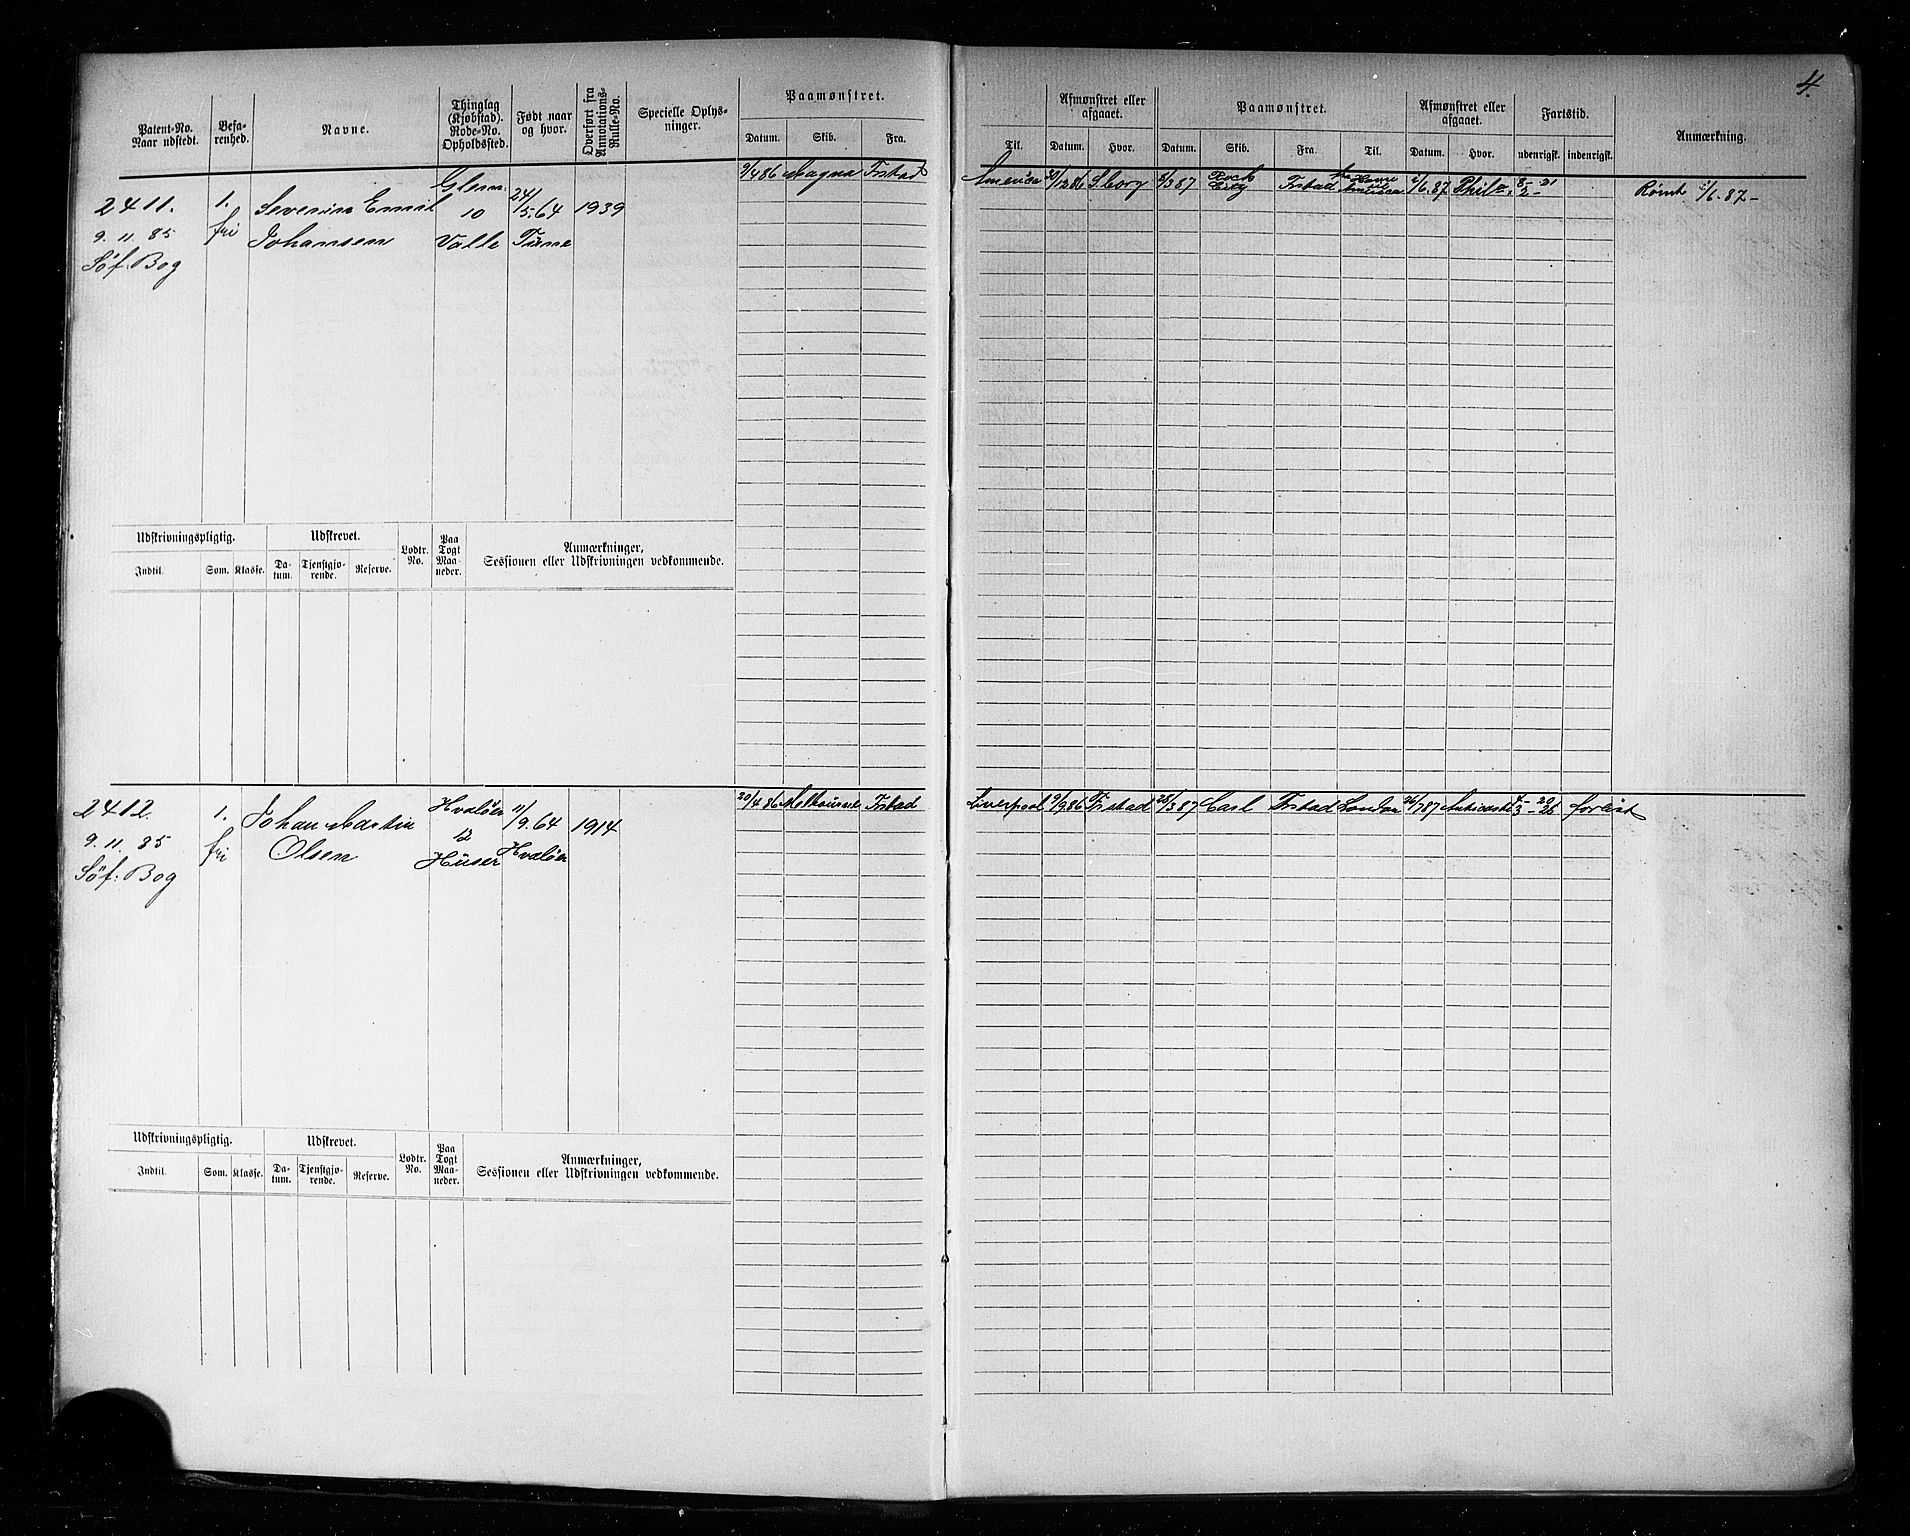 4.
Patent-No. Naar udstedt. Befarenhed. Navne. Thinglag (Kjøbstad). Rode-No. Opholdssted. Født naar og hvor. Overført fra Annotations-Rulle-No. Specielle Oplysninger. Paamønstret. Datum. Skib. Fra.
Til. Afmønstret eller afgaaet. Datum. Hvor. Paamønstret. Datum. Skib. Fra. Til. Afmønstret eller afgaaet. Datum. Hvor. Fartstid. udenrigsk. indenrigsk. Anmærkning.
9/4 86 Magna Frstad America 30/12 86 S.borg 8/3 87 Rock City Frstad America 2/6.87 Phila. 8/5 - 21 Rømt 2/6.87-
2411. 1. Severin Emil Glem: 10 24/5.64 1939
9.11.85 fri Johansen Valle Tune
Søf. Bog
Udskrivningspligtig. Udskrevet. Lodtr. No. Paa Togt Maaneder. Anmærkninger, Sessionen eller Udskrivningen vedkommende.
Indtil. Som. Klasse. Datum. Tjenstgjørende. Reserve.
20/4 86 Melbourne Frstad Liverpool 9/9 86 Frstad 28/3 87 Carl Frstad London 26/7 87 forlist
2412. 1. Johan Martin Hvaløer 12 11/9.64 1914
9.11.85 fri Olsen Huser Hvaløer
Søf: Bog
Udskrivningspligtig. Udskrevet. Lodtr. No. Paa Togt Maaneder. Anmærkninger, Sessionen eller Udskrivningen vedkommende.
Indtil. Som. Klasse. Datum. Tjenstgjørende. Reserve.